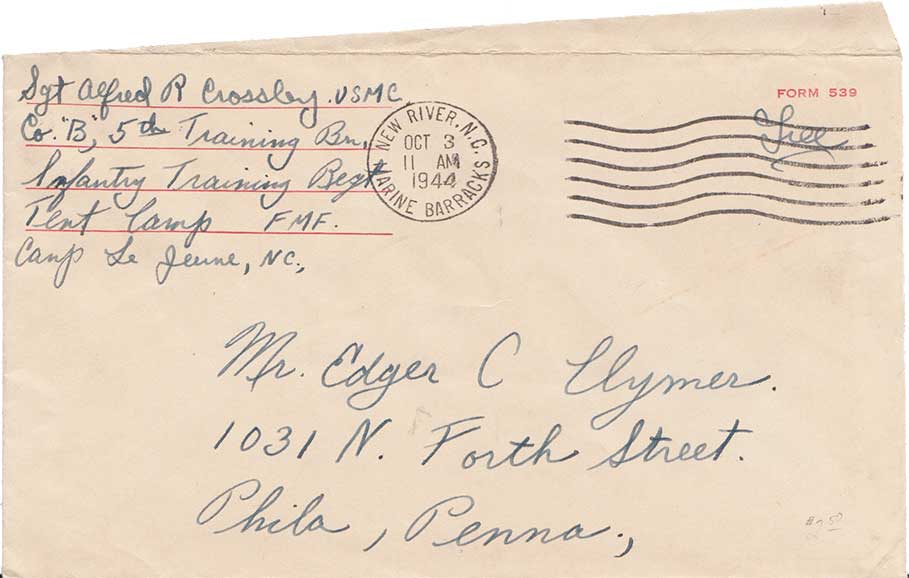 Sgt Alfred R Crossley USMC
Co. "B", 5th Training Bn.
Infantry Training Regt
Tent Camp FMF.
Camp Le Jeune, NC.,
NEW RIVER, N.C.
OCT 3
11 AM
1944
MARINE BARRACKS
FORM 539
Free
Mr. Edger C Clymer.
1031 N. Forth Street.
Phila, Penna.,
#2.50